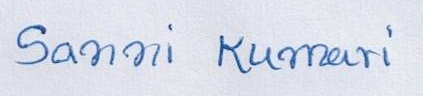 Sanni Kumari